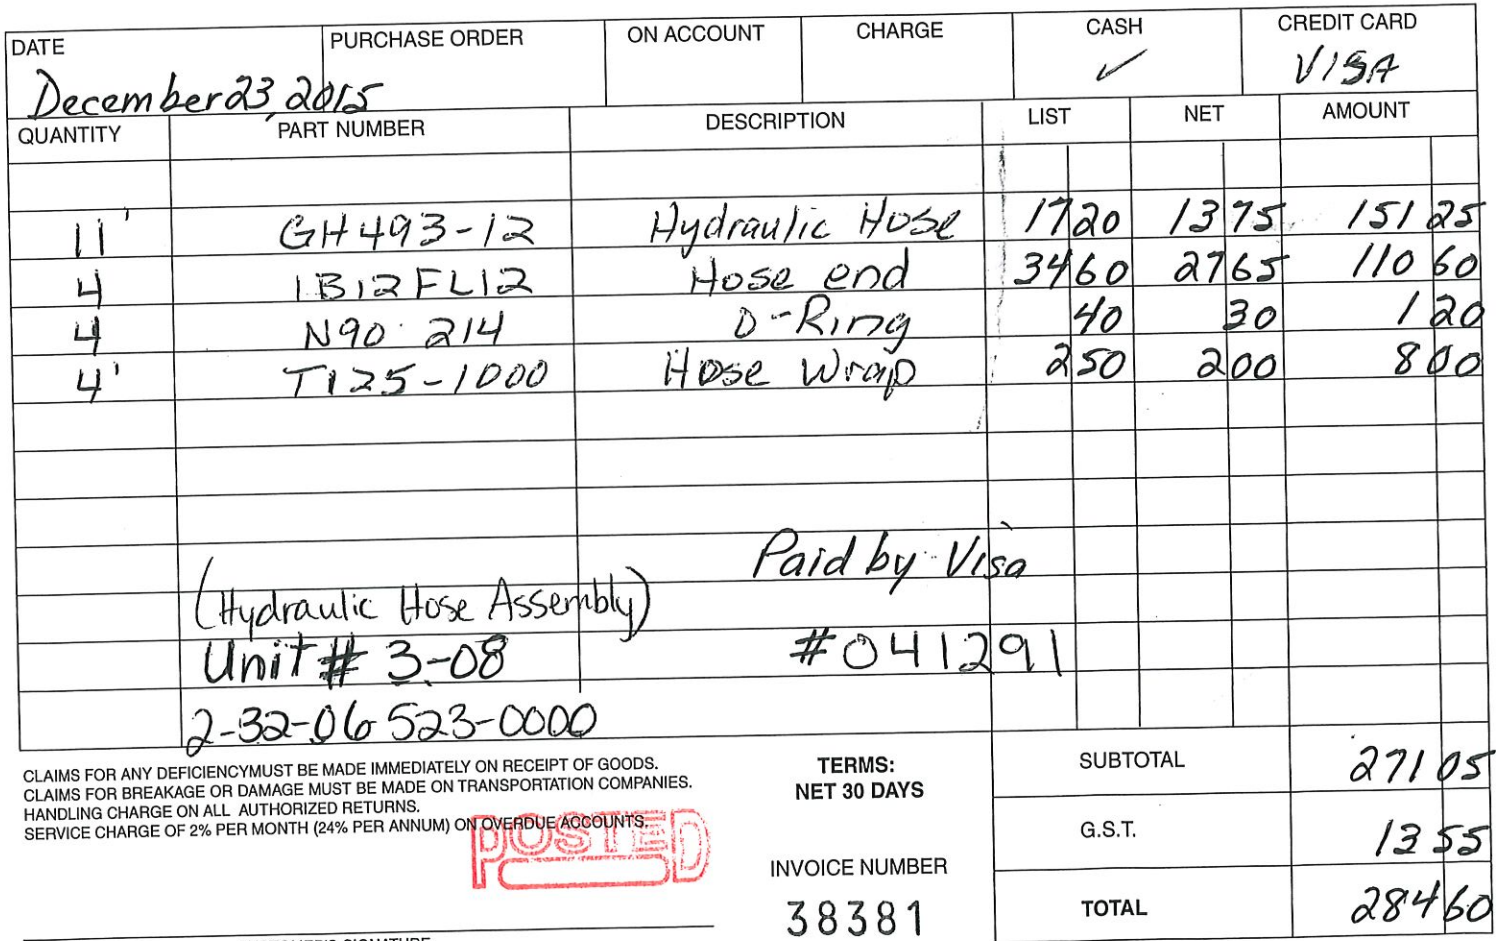 DATE PURCHASE ORDER ON ACCOUNT CHARGE CASH CREDIT CARD
December 23, 2015 ✓ VISA
QUANTITY PART NUMBER DESCRIPTION LIST NET AMOUNT
11' GH493-12 Hydraulic Hose 17 20 13 75 151 25
4 1B12FL12 Hose end 34 60 27 65 110 60
4 N90 214 O-Ring 40 30 1 20
4' T125-1000 Hose Wrap 2 50 2 00 8 00
Paid by Visa
(Hydraulic Hose Assembly)
Unit # 3-08 #041291
2-32-06 523-0000
CLAIMS FOR ANY DEFICIENCYMUST BE MADE IMMEDIATELY ON RECEIPT OF GOODS.
CLAIMS FOR BREAKAGE OR DAMAGE MUST BE MADE ON TRANSPORTATION COMPANIES.
HANDLING CHARGE ON ALL AUTHORIZED RETURNS.
SERVICE CHARGE OF 2% PER MONTH (24% PER ANNUM) ON OVERDUE ACCOUNTS.
POSTED
TERMS:
NET 30 DAYS
INVOICE NUMBER
38381
SUBTOTAL 271 05
G.S.T. 13 55
TOTAL 284 60